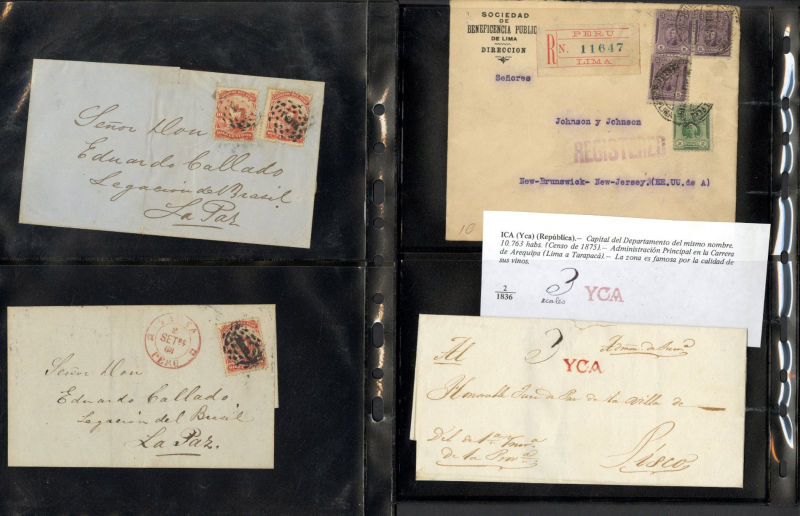 Señor Don
Eduardo Callado
Legación del Brasil
La Paz
SOCIEDAD
DE
BENEFICENCIA PUBLIC
DE LIMA
DIRECCION
PERU
R N. 11647
LIMA
Señores
Johnson y Johnson
REGISTERED
New-Brunswick- New-Jersey.(EE.UU.de A)
10
ICA (Yca) (República).— Capital del Departamento del mismo nombre.
10.763 habs. (Censo de 1875).— Administración Principal en la Carrera
de Arequipa (Lima a Tarapacá).— La zona es famosa por la calidad de
sus vinos.
2
1836
3
reales
YCA
SET
PERU
Señor Don
Eduardo Callado,
Legación del Brasil
La Paz.
Al
3
YCA
Honorable Juez de Paz de la Villa de
Pisco
Del de 1ª
de la